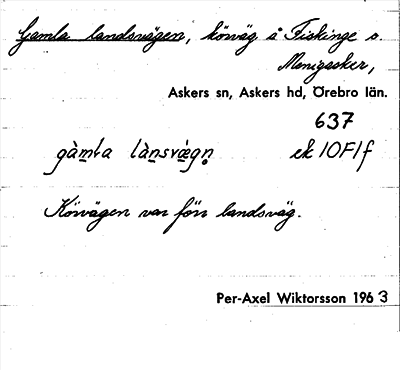 Gamla landsvägen, körväg å Fiskinge o.
Menigasker,
Askers sn, Askers hd, Örebro län.
637
gàmla lànsvægn̥ ek 10F1f
Körvägen var förr landsväg.
Per-Axel Wiktorsson 1963